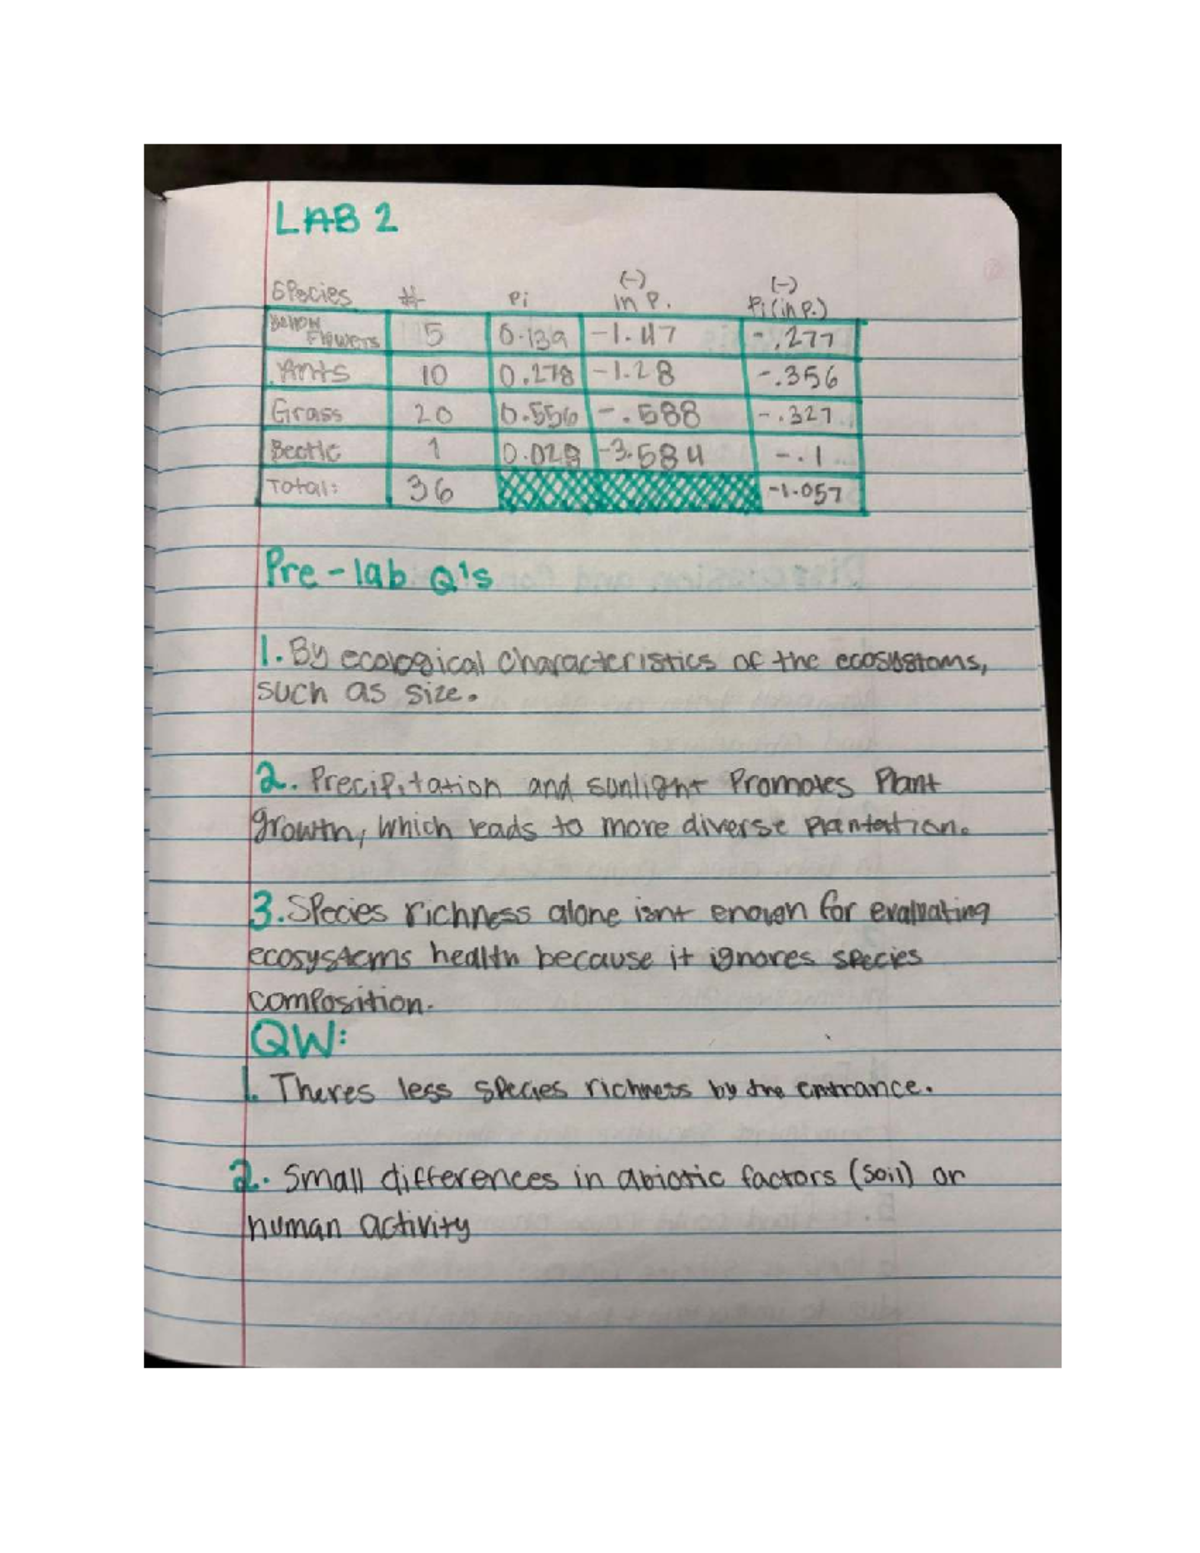 LAB 2
Species # Pi (-) ln P. (-) Pi(ln P.)
Yellow Flowers 5 0.139 -1.47 -.277
Ants 10 0.278 -1.28 -.356
Grass 20 0.556 -.588 -.327
Beetle 1 0.028 -3.584 -.1
Total: 36 -1.057
Pre-lab Q's
1. By ecological characteristics of the ecosystems,
such as size.
2. Precipitation and sunlight Promotes Plant
growth, which leads to more diverse plantation.
3. Species richness alone isnt enough for evaluating
ecosystems health because it ignores species
composition.
QW:
1. Theres less species richness by the entrance.
2. Small differences in abiotic factors (soil) or
human activity